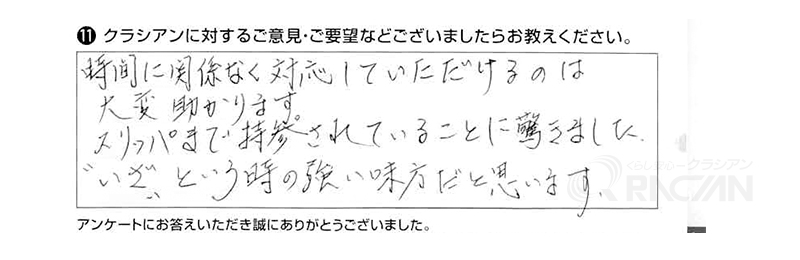 ⑪ クラシアンに対するご意見・ご要望などございましたらお教えください。
時間に関係なく対応していただけるのは
大変助かります。
スリッパまで持参されていることに驚きました。
"いざ"という時の強い味方だと思います。
くらしあんしんクラシアン
QRACIAN
アンケートにお答えいただき誠にありがとうございました。